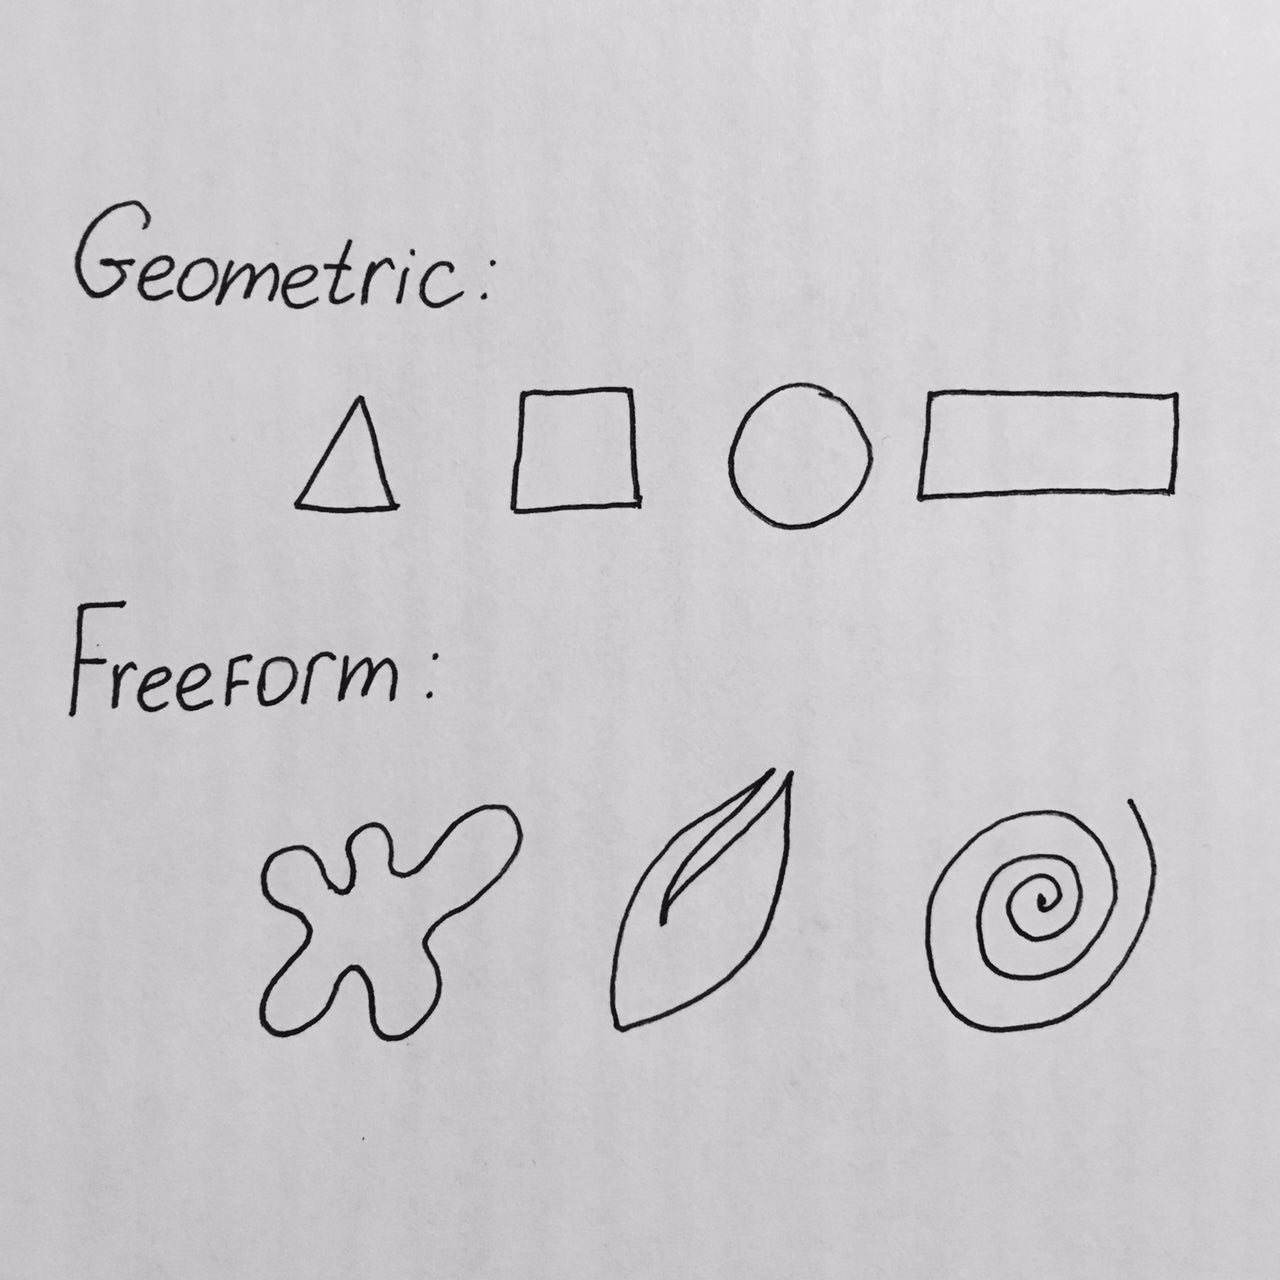 Geometric:
Freeform: